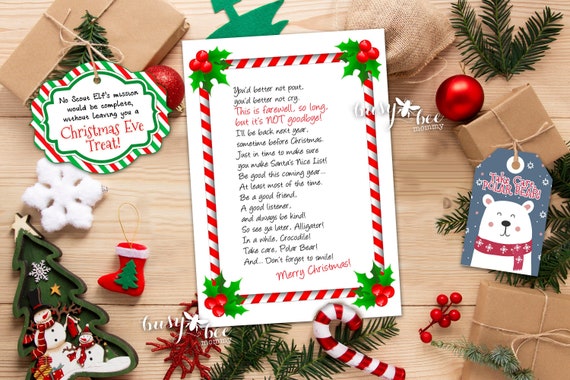 No Scout Elf's mission
would be complete,
without leaving you a
Christmas Eve
Treat!
You'd better not pout,
you'd better not cry.
This is farewell, so long,
but it's NOT goodbye!
I'll be back next year,
sometime before Christmas.
Just in time to make sure
you make Santa's Nice List!
Be good this coming year...
At least most of the time.
Be a good friend,
A good listener,
and always be kind!
So see ya later, Alligator!
In a while, Crocodile!
Take care, Polar Bear!
And... Don't forget to smile!
Merry Christmas!
Take Care,
POLAR BEAR!
busy bee
mommy
busy bee
mommy
busy bee
mommy